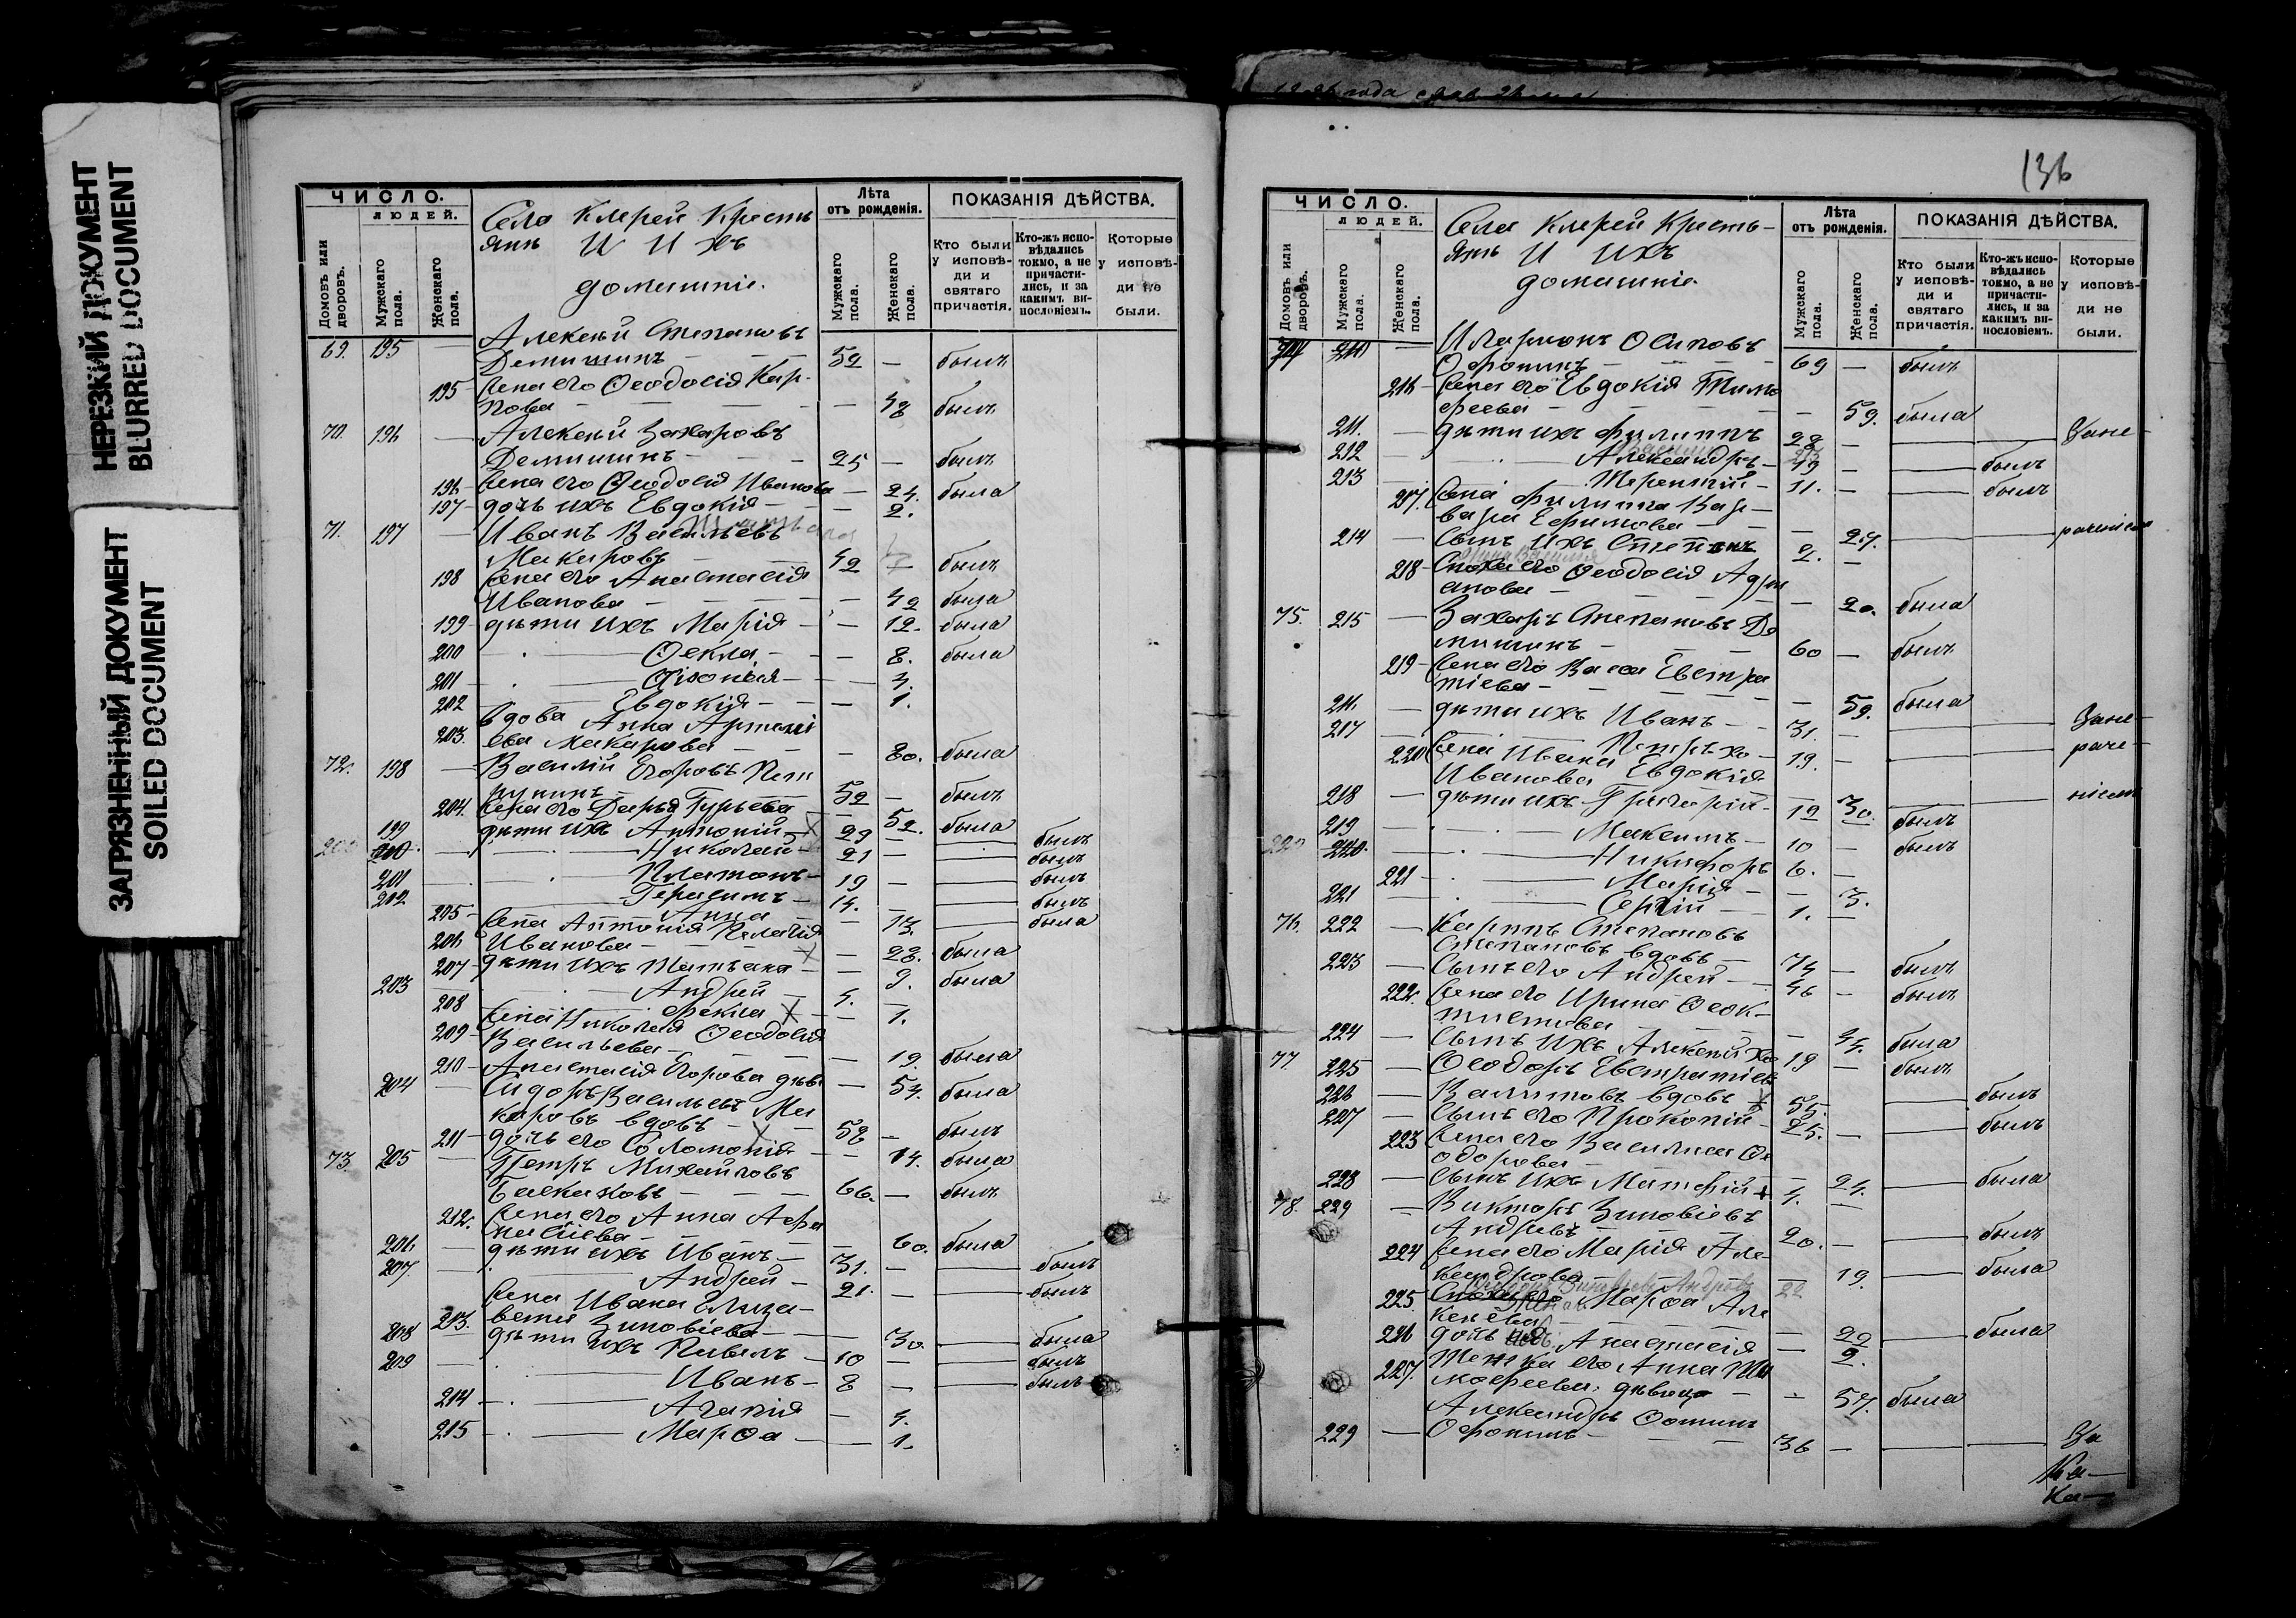 НЕРЕЗКИЙ ДОКУМЕНТ
BLURRED DOCUMENT
ЗАГРЯЗНЕННЫЙ ДОКУМЕНТ
SOILED DOCUMENT
ЧИСЛО.
людей.
Домовъ или дворовъ.
Мужскаго пола.
Женскаго пола.
Села Клерей Кресть
яне И Ихъ
домашніе.
Лѣта отъ рожденія.
Мужскаго пола.
Женскаго пола.
ПОКАЗАНІЯ ДѢЙСТВА.
Кто были у исповѣди и святаго причастія.
Кто-жъ исповѣдались токмо, а не причастились, и за какимъ винословіемъ.
Которые у исповѣди не были.
69. 195 — Алексѣй Степановъ
Демишинъ — 52 — былъ
195 Жена его Ѳеодосія Кар-
пова — 48 былъ
70. 196 — Алексѣй Захаровъ
Демишинъ — 25 — былъ
196 Жена его Ѳеодосія Иванова — 24. была
197 дочь ихъ Евдокія — 2.
71. 197 — Иванъ Васильевъ
Макаровъ 42 — былъ
198 Жена его Анастасія
Иванова — 42 была
199 дѣти ихъ Марія — 12. была
200 Ѳекла — 8. была
201 — 4.
202 Евдокія — 1.
203. Вдова Анна Артемі
ева Макарова — 80. была
72. 198 — Василій Егоровъ Пет
рунинъ 52 — былъ
204. Жена его Дарья Гурьева — 52. была
199 дѣти ихъ Антоній 29 — былъ
200 Николай 21 — былъ
201 Платонъ 19 — былъ
202 Герасимъ 14. былъ
205 Анна — 13. была
Жена Антонія Пелагія
206 Иванова — 28. была
207 дѣти ихъ Татьяна — 9. была
203 Андрей 4. —
208 Фекла — 1.
Жена Николая Ѳеодосія
209 Васильева — 19. была
210 Анастасія Егорова дѣви — 54. была
204 — Сидоръ Васильевъ Ма
каровъ вдовъ 58 — былъ
211 дочь его Соломонія — 14. была
73. 205 — Петръ Михайловъ
Баскаковъ 66. — былъ
212. Жена его Анна Афа
насіева — 60. была
206 дѣти ихъ Иванъ — 31. — былъ
207. Андрей — 21. — былъ
Жена Ивана Елиза-
213. вета Зиновіева — 30 — была
208 дѣти ихъ Павелъ — 10 — былъ
209 Иванъ — 8 — былъ
214 Агапія — 4.
215 Марѳа — 1.
136
ЧИСЛО.
людей.
Домовъ или дворовъ.
Мужскаго пола.
Женскаго пола.
Села Клерей Кресть-
яне И ихъ
домашніе.
Лѣта отъ рожденія.
Мужскаго пола.
Женскаго пола.
ПОКАЗАНІЯ ДѢЙСТВА.
Кто были у исповѣди и святаго причастія.
Кто-жъ исповѣдались токмо, а не причастились, и за какимъ винословіемъ.
Которые у исповѣди не были.
74 210 — Иларіонъ Осиповъ
Офонинъ — 69 — былъ
216 Жена его Евдокія Тимо
феева — 59. была
211. дѣти ихъ Филиппъ 28 — Зане-
212 Александръ — 19 — былъ
213 Терентій — 11. — былъ
217. Жена Филиппа Вар-
вара Ефимова — 27. раченіемъ
214 — Сынъ ихъ Степанъ 2. —
218 Сноха его Ѳеодосія Адри
анова — 20. была
75. 215 — Захаръ Степановъ Де
мишинъ — 60 — былъ
219 Жена его Васса Евстра
тіева — 59. была
216. дѣти ихъ Иванъ — 31. — Зане-
217 Петръ хо — 19. — раче-
220 Жена Ивана Евдокія
Иванова — 30. ніемъ
218 — дѣти ихъ Григорій — 12 былъ
219 Максимъ — 10 — былъ
220. Никифоръ 6. —
221 Марія — 3.
221 Сергій — 1. —
76. 222 — Карпъ Степановъ
Степановъ вдовъ — 74 — былъ
223 — Сынъ его Андрей — 46 — былъ
222. Жена его Ирина Ѳеок-
тистова — 44. была
224 — Сынъ ихъ Алексѣй хо 19 — былъ
77. 225 — Ѳеодоръ Евстратіев
226 — вдовъ 55. былъ
227 — Сынъ его Прокопій — 25. — былъ
223 Жена его Василиса Ѳе
одорова — 24. — была
228 — Сынъ ихъ Матфій 4. —
78. 229 — Викторъ Зиновіевъ
Андреевъ 20. — былъ
224 Жена его Марія Але-
ксандрова — 19. — была
225. Марѳа Але
ксѣева — 22 — была
226 дочь Анастасія — 2.
227. Тетка его Анна Ти
моѳеева, дѣвица — 57. была
Александръ Ѳоминъ
229 — Офонинъ — 36 — За